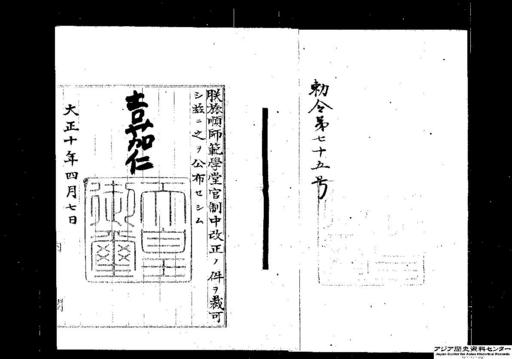 勅令第七十五号
朕旅順師範學堂官制中改正ノ件ヲ裁可
シ茲ニ之ヲ公布セシム
嘉仁
天皇御璽
大正十年四月七日
アジア歴史資料センター
Japan Center for Asian Historical Records